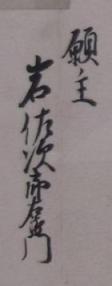 願主
岩佐次郎右衛門